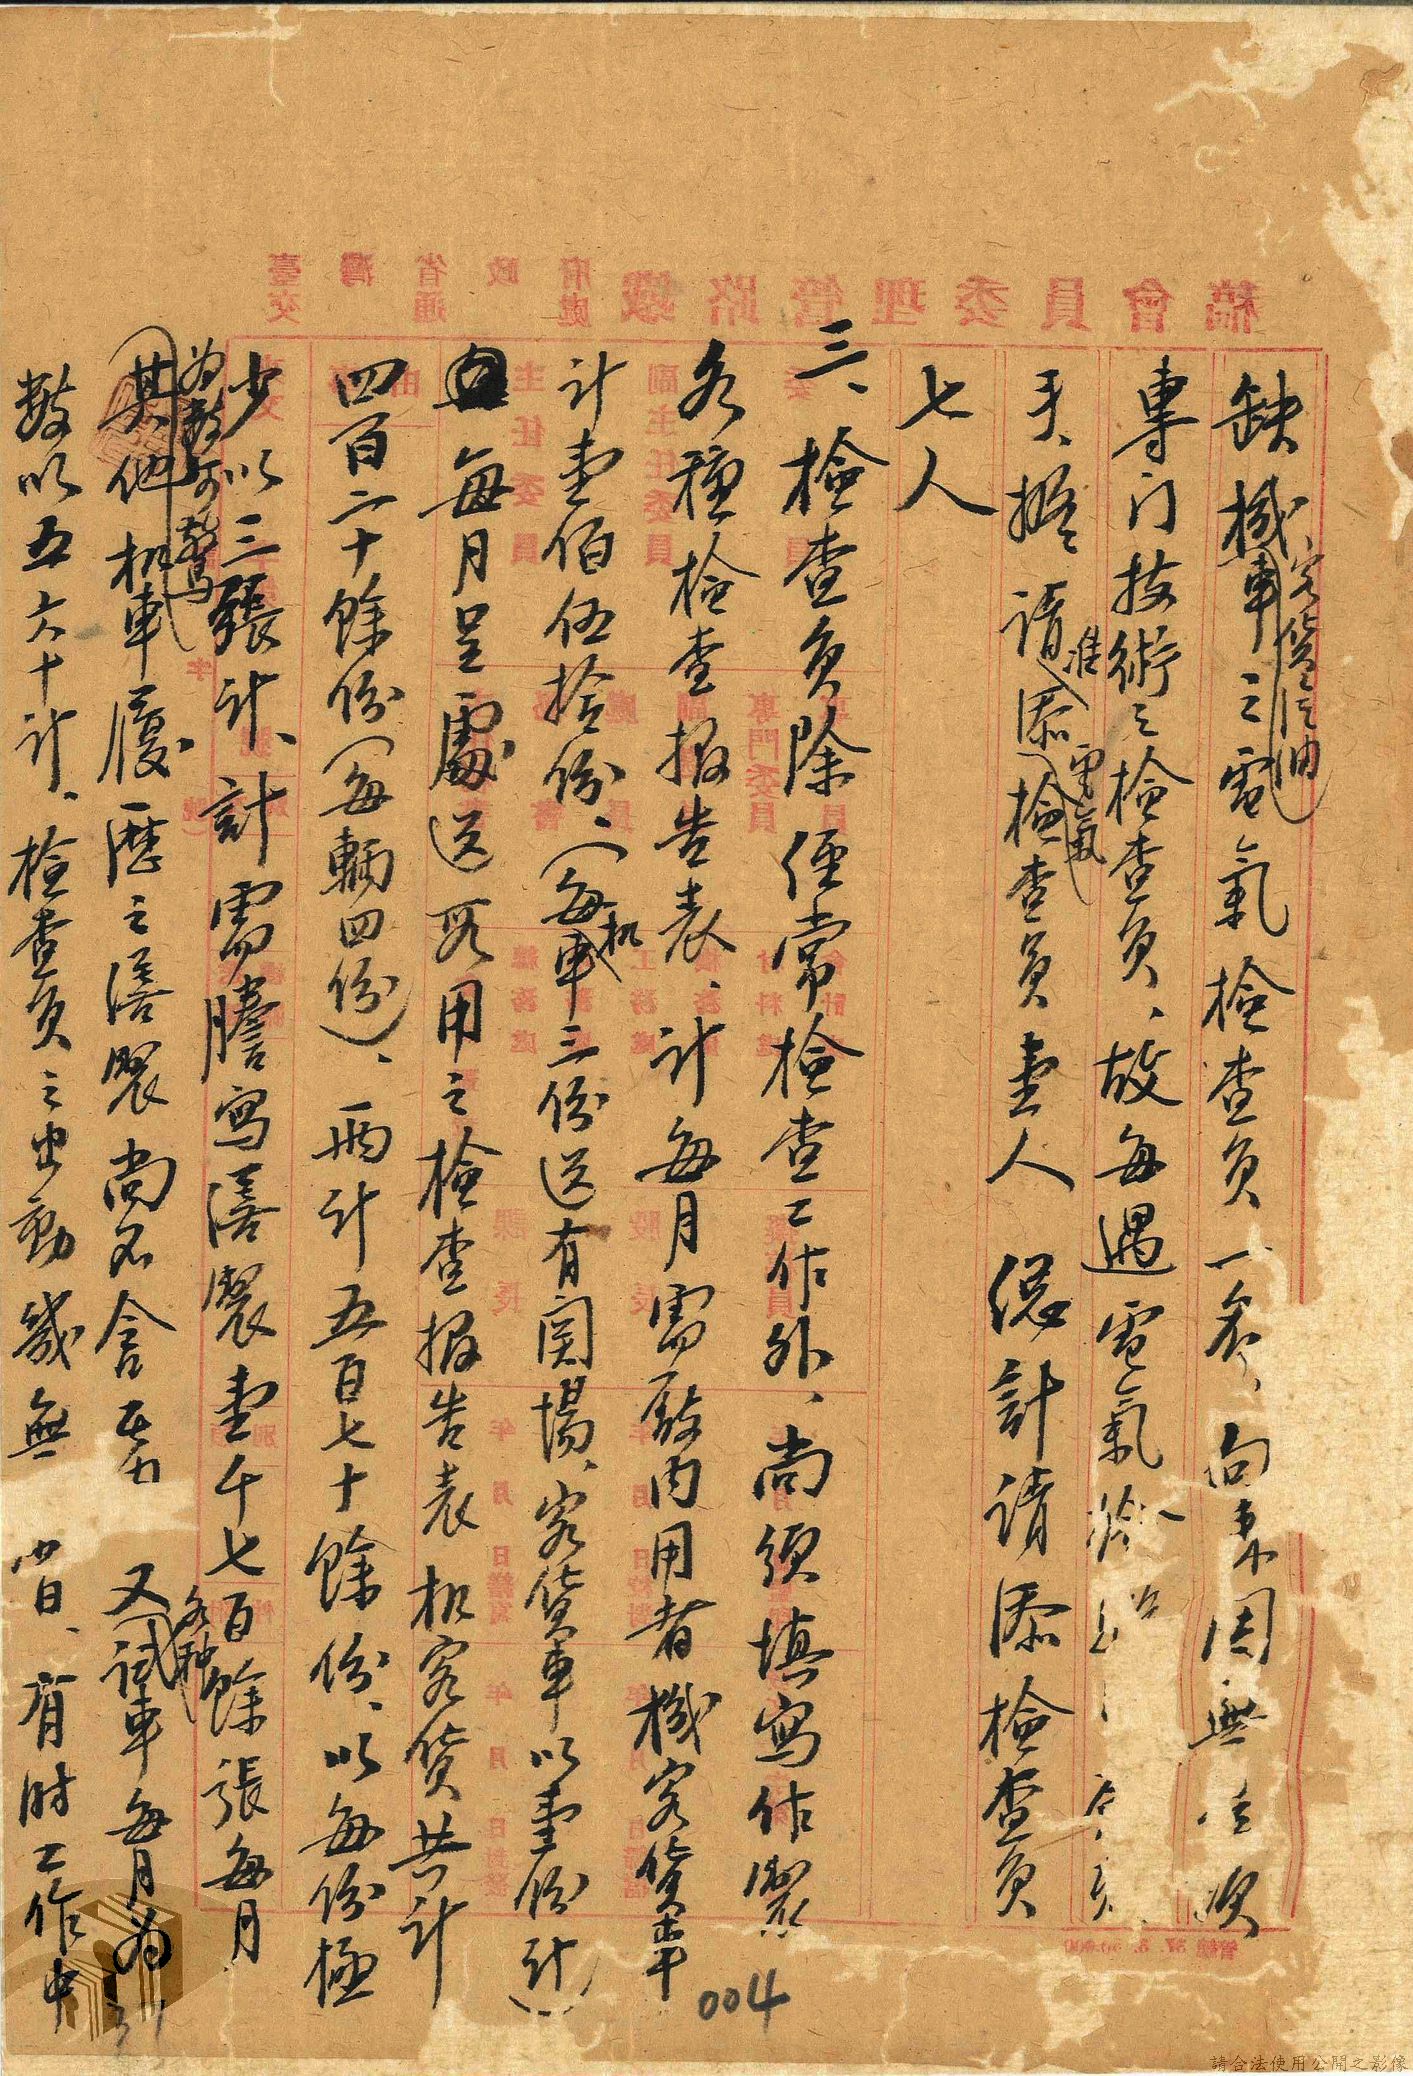 缺機車、客貨汽油車之電氣檢查員一名、向來因無
專門技術之檢查員、故每遇電氣
手、擬請准添電氣檢查員壹人 總計請添檢查員
七人
三、檢查員除經常檢查工作外、尚須填寫作製
各種檢查報告表、計每月需廠內用者機客貨車
計壹佰伍拾份、（每機車三份送有関場、客貨車以壹份計）
每月呈處送段用之檢查報告表机客貨共計
四百二十餘份（每輛四份）、兩計五百七十餘份、以每份極
少以三張計、計需謄寫繕製壹千七百餘張每月
為數可驚
其他机車履歷之繕製尚不含在內 又各種試車每月為
數以五六十計、檢查員之出動幾無 日、有時工作中
稿會員委理管路鐵
臺灣省政府
交通處
004
請合法使用公開之影像